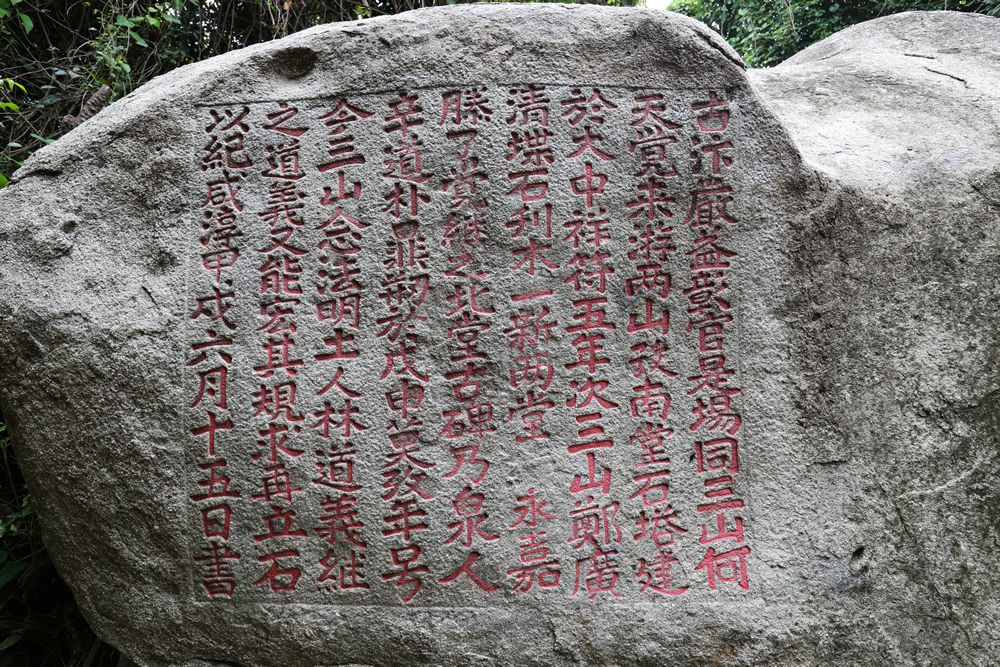 古汴嚴益彰官是場同三山何
天覺来游两山攷南堂石塔建
於大中祥符五年次三山鄭廣
清堞石刋木一新两堂 永嘉
滕了覺継之北堂古碑乃泉人
辛道朴鼎刱於戊申莫攷年号
今三山念法明土人林道義継
之道義又能宏其規求再立石
以紀咸淳甲戌六月十五日書